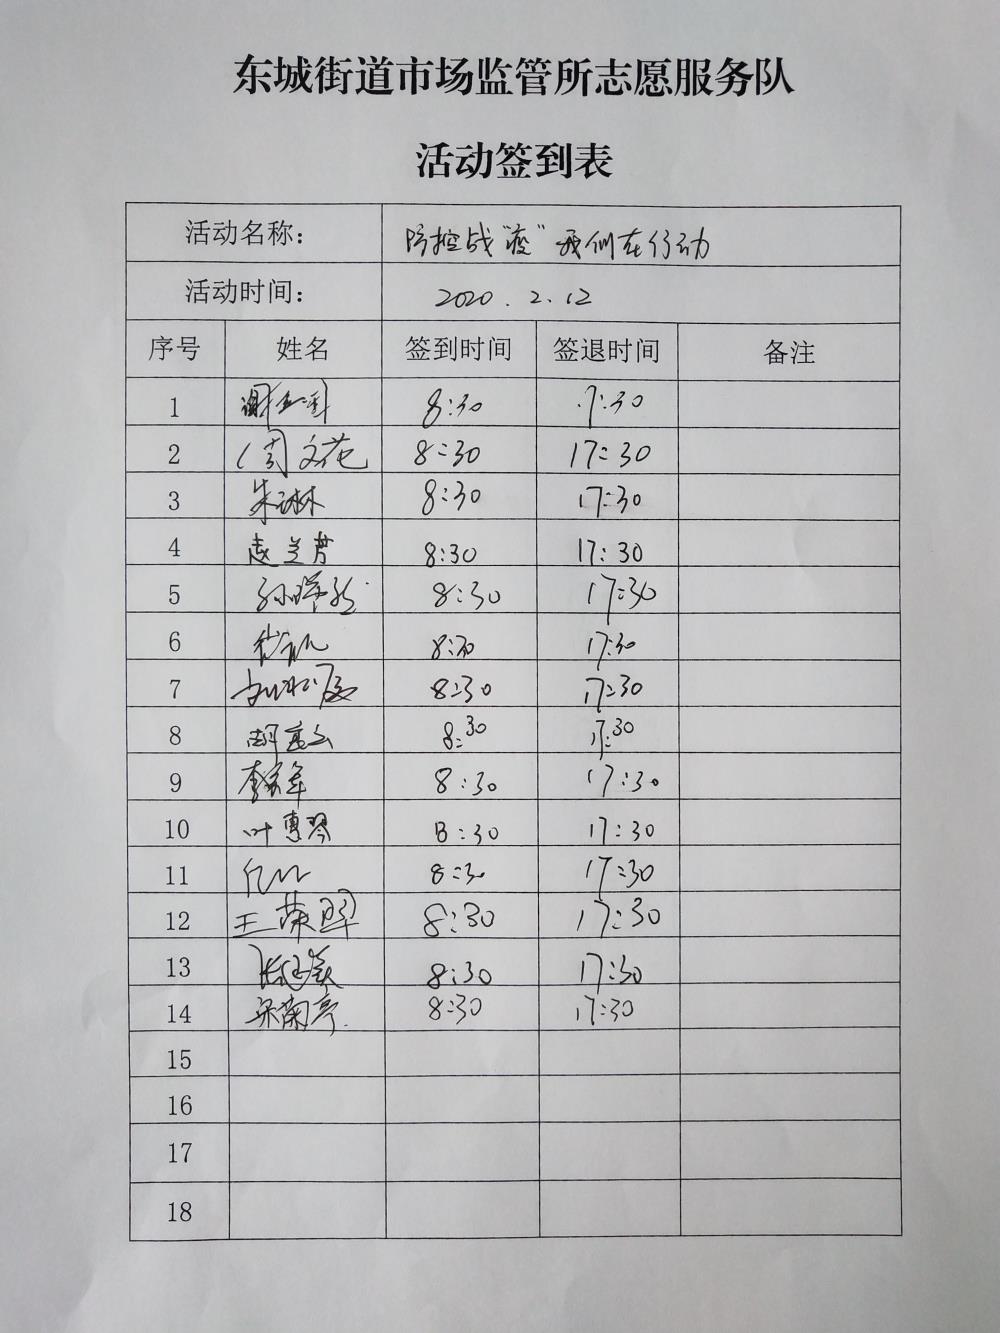 东城街道市场监管所志愿服务队
活动签到表
活动名称： 防控战“疫”我们在行动
活动时间： 2020.2.12
序号 姓名 签到时间 签退时间 备注
1 8:30 17:30
2 周文花 8:30 17:30
3 朱琳林 8:30 17:30
4 赵兰芳 8:30 17:30
5 8:30 17:30
6 8:30 17:30
7 8:30 17:30
8 8:30 17:30
9 李家年 8:30 17:30
10 叶惠琴 8:30 17:30
11 8:30 17:30
12 王荣 8:30 17:30
13 8:30 17:30
14 梁菊亭 8:30 17:30
15
16
17
18